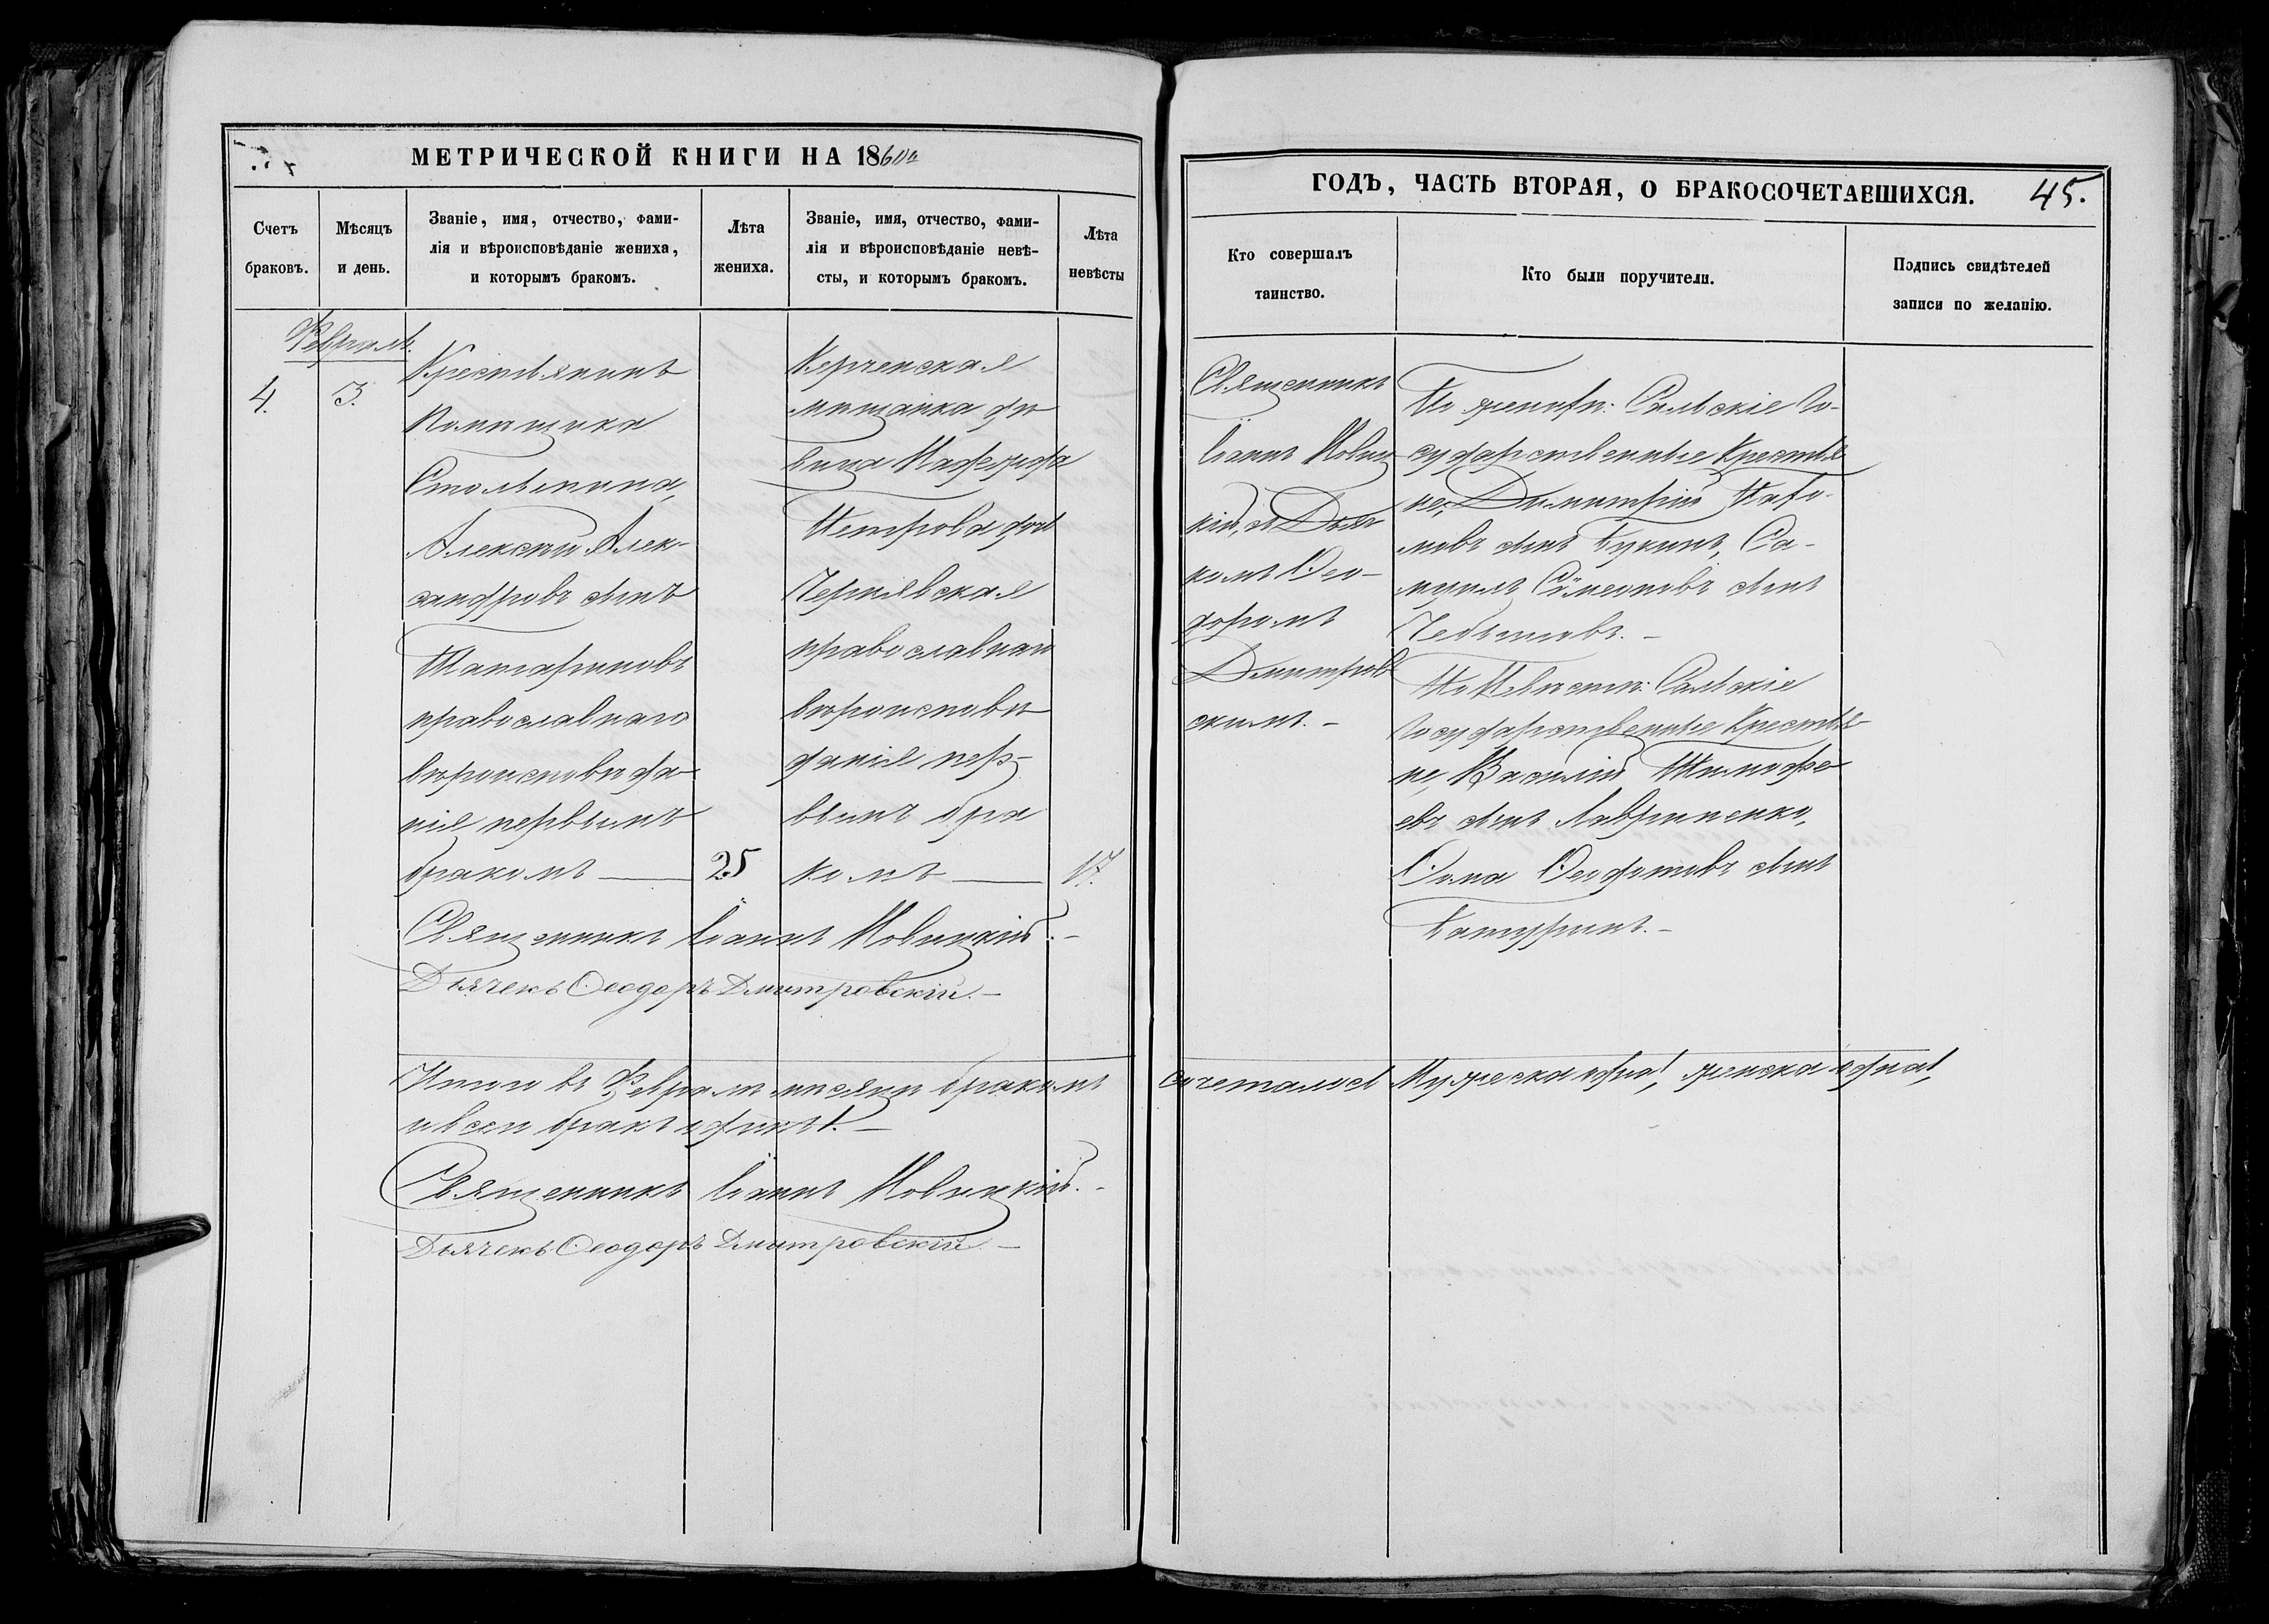 МЕТРИЧЕСКОЙ КНИГИ НА 1860й
ГОДЪ, ЧАСТЬ ВТОРАЯ, О БРАКОСОЧЕТАВШИХСЯ. 45.
Счетъ
браковъ.
Мѣсяцъ
и день.
Званіе, имя, отчество, фами-
лія и вѣроисповѣданіе жениха,
и которымъ бракомъ.
Лѣта
жениха.
Званіе, имя, отчество, фами-
лія и вѣроисповѣданіе невѣ-
сты, и которымъ бракомъ.
Лѣта
невѣсты
Кто совершалъ
таинство.
Кто были поручители.
Подпись свидѣтелей
записи по желанію.
Февраль.
4.
3.
Крестьянинъ
Помѣщика
Столыпина,
Алексѣй Алек-
сандровъ сынъ
Татариновъ
православнаго
вѣроисповѣда-
нія первымъ
бракомъ
25
Керченская
мѣщанка дѣ
вица Надежда
Петрова дочь
Чернявская
православнаго
вѣроисповѣ
данія пер-
вымъ бра
комъ
17.
Священникъ
Іоаннъ Новиц
кій, съ Дьяч
комъ Ѳео-
доромъ
Дмитров
скимъ. -
По женихѣ: Сельскіе Го-
сударственные Крестья
не, Димитрій
сынъ Букинъ, Са-
муилъ Сѵмеоновъ сынъ
По Невѣстѣ: Сельскіе
Государственные Крестья
не, Василій Тимофе
евъ сынъ Лавриненко,
Ѳома Ѳедотовъ сынъ
Батуринъ. -
Священникъ Іоаннъ Новицкій. -
Дьячекъ Ѳеодоръ Дмитровскій. -
Итого въ Февралѣ мѣсяцѣ бракомъ сочеталось Мужеска одна 1, женска одна 1,
и всего бракъ одинъ 1. -
Священникъ Іоаннъ Новицкій. -
Дьячекъ Ѳеодоръ Дмитровскій -